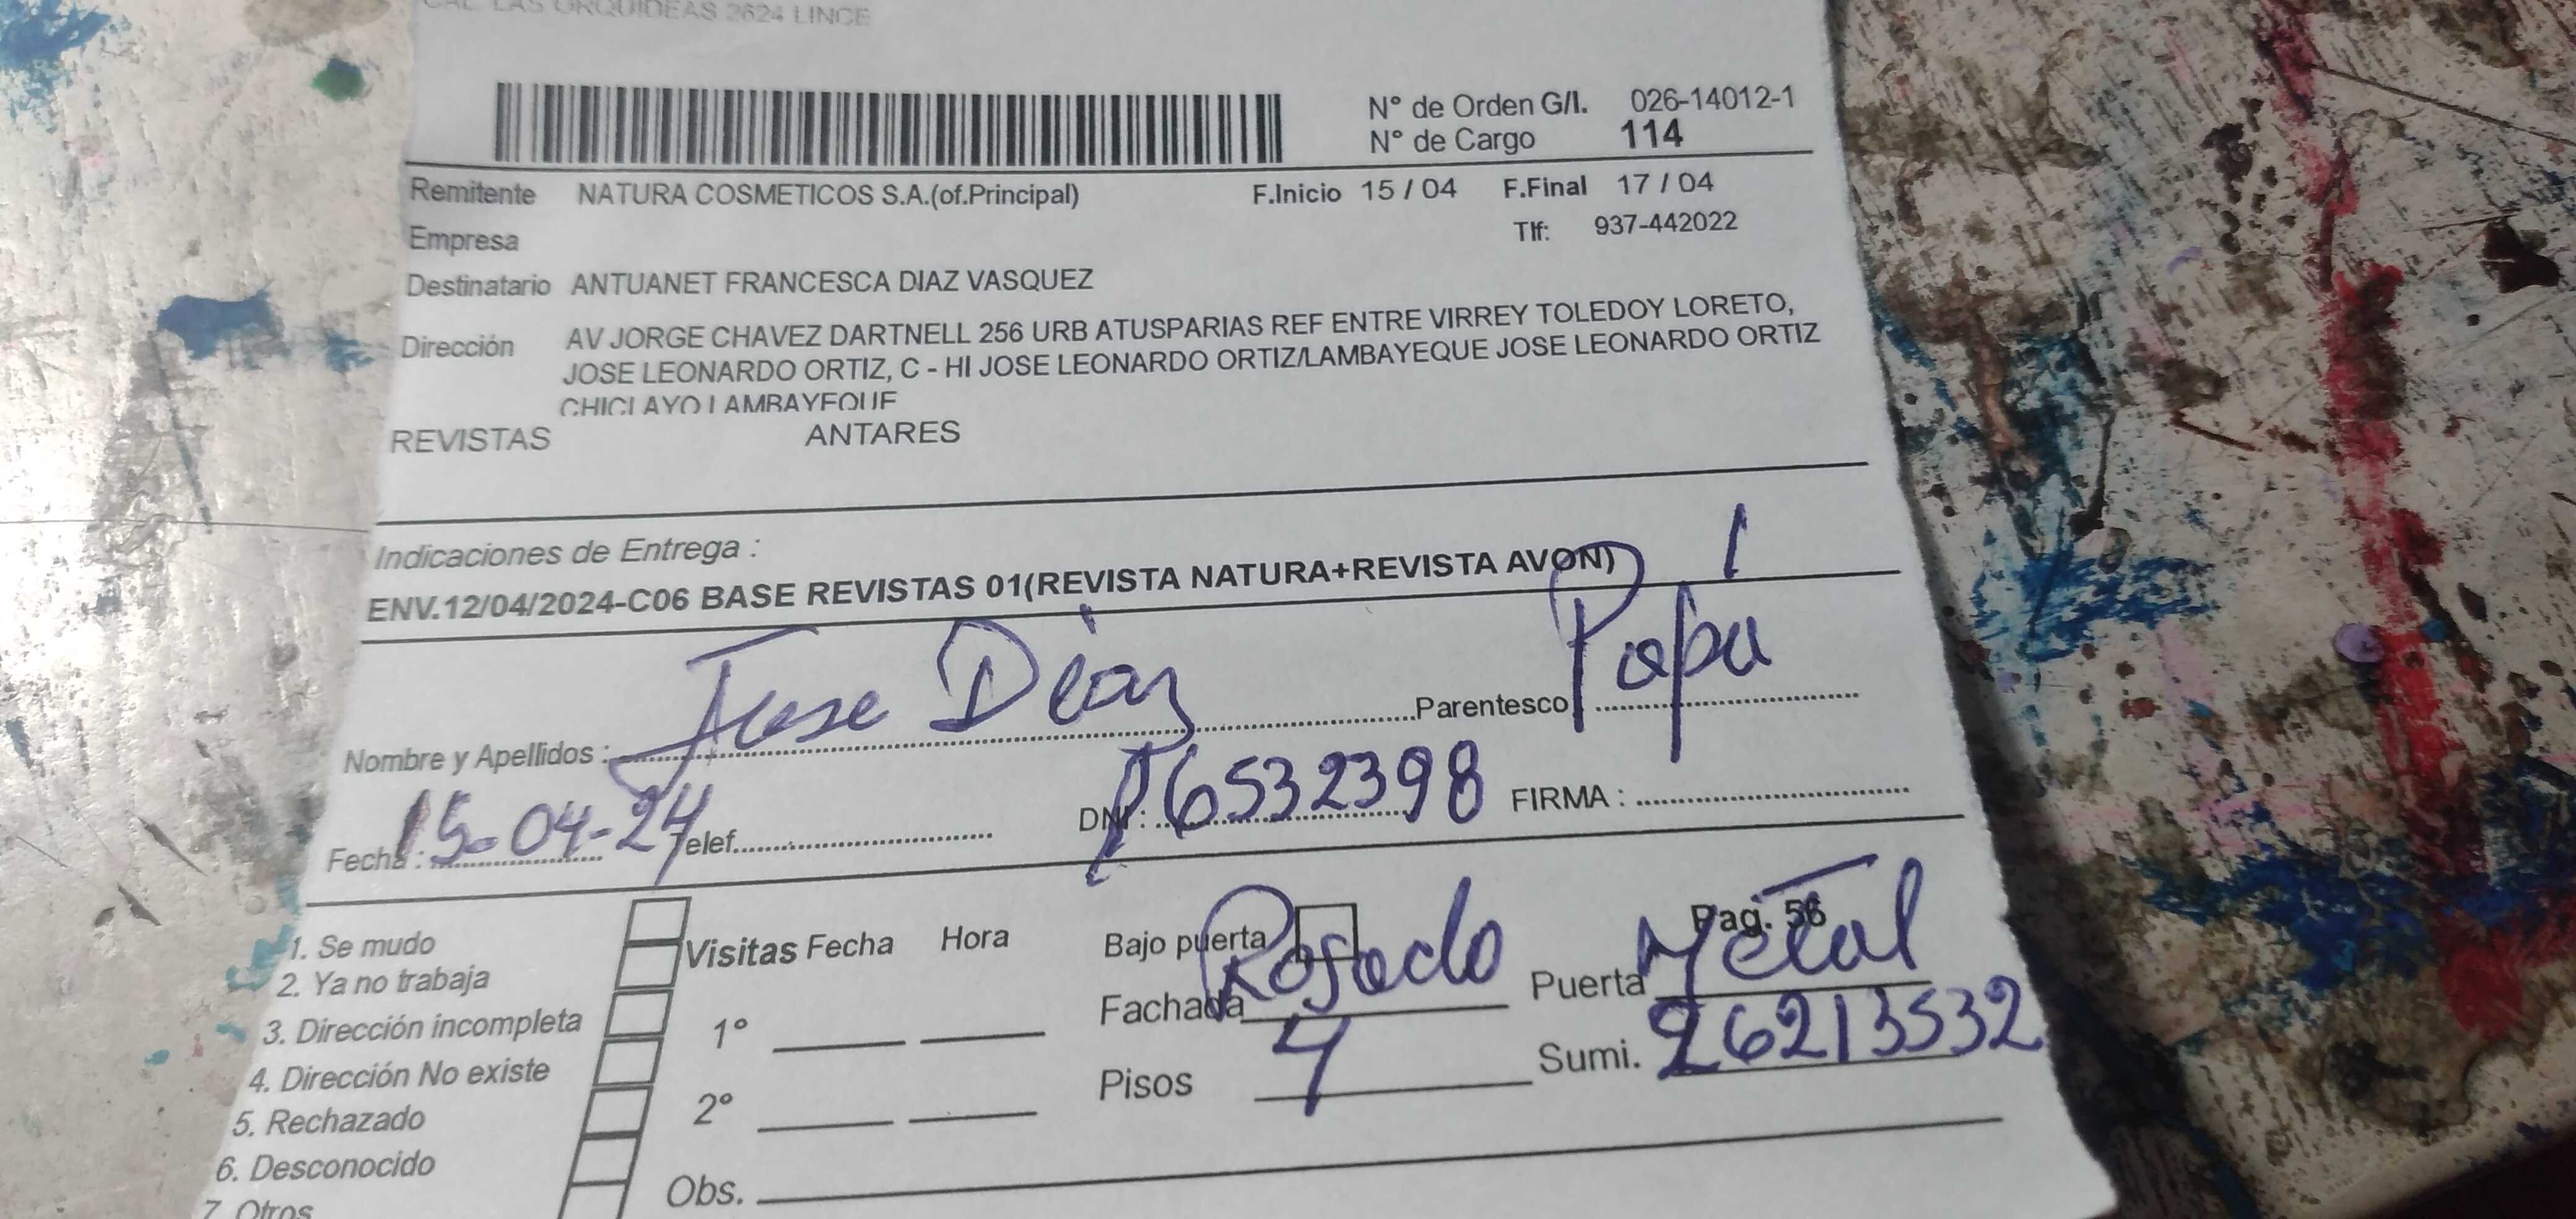 CAL. LAS ORQUIDEAS 2624 LINCE
N° de Orden G/I. 026-14012-1
N° de Cargo 114
Remitente NATURA COSMETICOS S.A.(of.Principal) F.Inicio 15 / 04 F.Final 17 / 04
Empresa Tlf: 937-442022
Destinatario ANTUANET FRANCESCA DIAZ VASQUEZ
Dirección AV JORGE CHAVEZ DARTNELL 256 URB ATUSPARIAS REF ENTRE VIRREY TOLEDOY LORETO,
JOSE LEONARDO ORTIZ, C - HI JOSE LEONARDO ORTIZ/LAMBAYEQUE JOSE LEONARDO ORTIZ
CHICLAYO LAMBAYEQUE
REVISTAS ANTARES
Indicaciones de Entrega :
ENV.12/04/2024-C06 BASE REVISTAS 01(REVISTA NATURA+REVISTA AVON) 1
Nombre y Apellidos : Jose Diaz Parentesco Papa
Fecha : 15-04-24 Telef. DNI : 16532398 FIRMA :
Pag. 56
1. Se mudo Visitas Fecha Hora Bajo puerta
2. Ya no trabaja Fachada Rosado Puerta Metal
3. Dirección incompleta 1°
4. Dirección No existe Pisos 4 Sumi. 26213532
5. Rechazado 2°
6. Desconocido Obs.
7. Otros